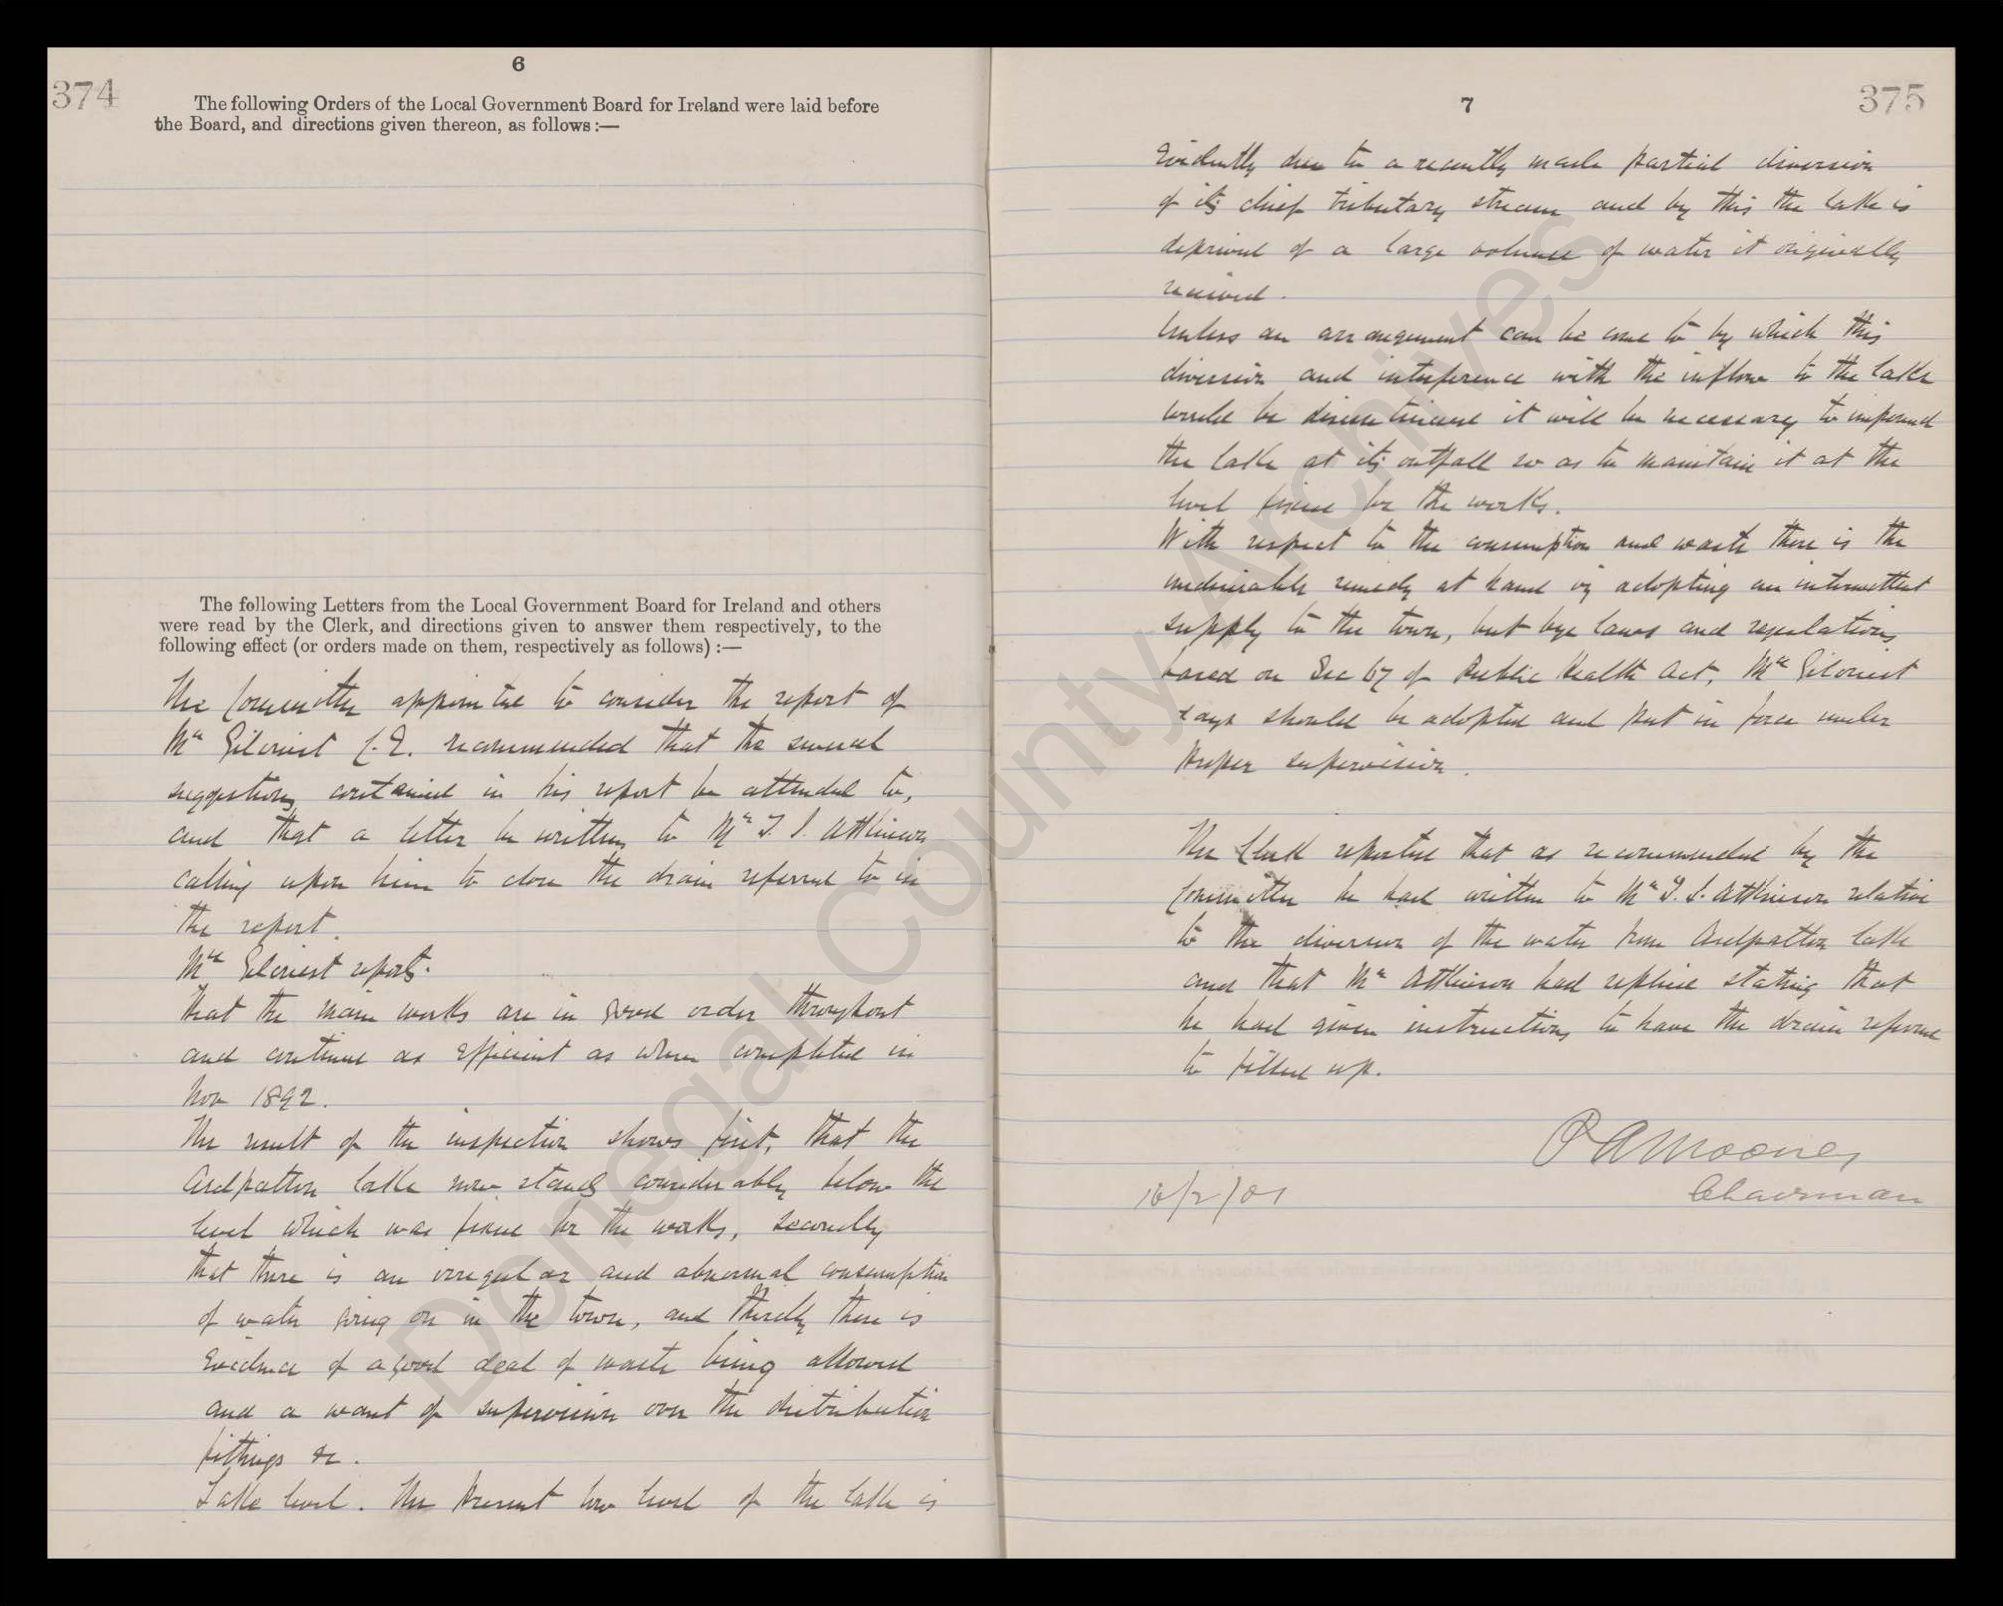 374
6
The following Orders of the Local Government Board for Ireland were laid before
the Board, and directions given thereon, as follows :—
The following Letters from the Local Government Board for Ireland and others
were read by the Clerk, and directions given to answer them respectively, to the
following effect (or orders made on them, respectively as follows) :—
The Committee appointed to consider the report of
Mr Gilcriest C.E. recommended that the several
suggestions contained in his report be attended to,
and that a letter be written to Mr T. J. Atkinson
calling upon him to close the drain referred to in
the report.
Mr Gilcriest reports.
That the main works are in good order throughout
and continue as efficient as when completed in
Nov 1892.
The result of the inspection shows first, that the
Ardpatton lake now stands considerably below the
level which was fixed for the works, secondly
that there is an irregular and abnormal consumption
of water going on in the town, and thirdly there is
Evidence of a good deal of waste being allowed
and a want of supervision over the distribution
fittings &c.
Lake level. The present low level of the lake is
375
7
Evidently due to a recently made partial diversion
of its chief tributary stream and by this the lake is
deprived of a large volume of water it originally
received.
Unless an arrangement can be come to by which this
diversion and interference with the inflow to the lake
would be discontinued it will be necessary to impound
the lake at its outfall so as to maintain it at the
level fixed for the works.
With respect to the consumption and waste there is the
undesirable remedy at hand of adopting an intermittent
supply to the town, but bye laws and regulations
based on Sec 67 of Public Health Act, Mr Gilcriest
says should be adopted and put in force under
proper supervision.
The Clerk reported that as recommended by the
Committee he had written to Mr T. J. Atkinson relative
to the diversion of the water from Ardpatton lake
and that Mr Atkinson had replied stating that
he had given instructions to have the drain referred
to filled up.
P A Mooney
16/2/01
Chairman
Donegal County Archives